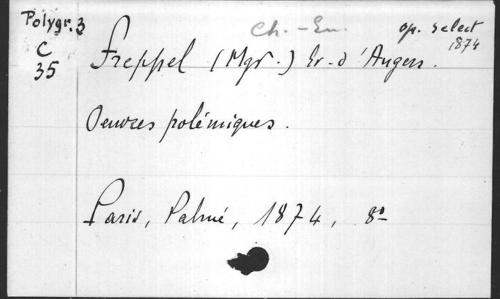 Polygr. 3
C
35
Ch.-Em.
op. select
1874
Freppel (Mgr.) Ev. d'Angers.
Oeuvres polémiques.
Paris, Palmé, 1874, 8º